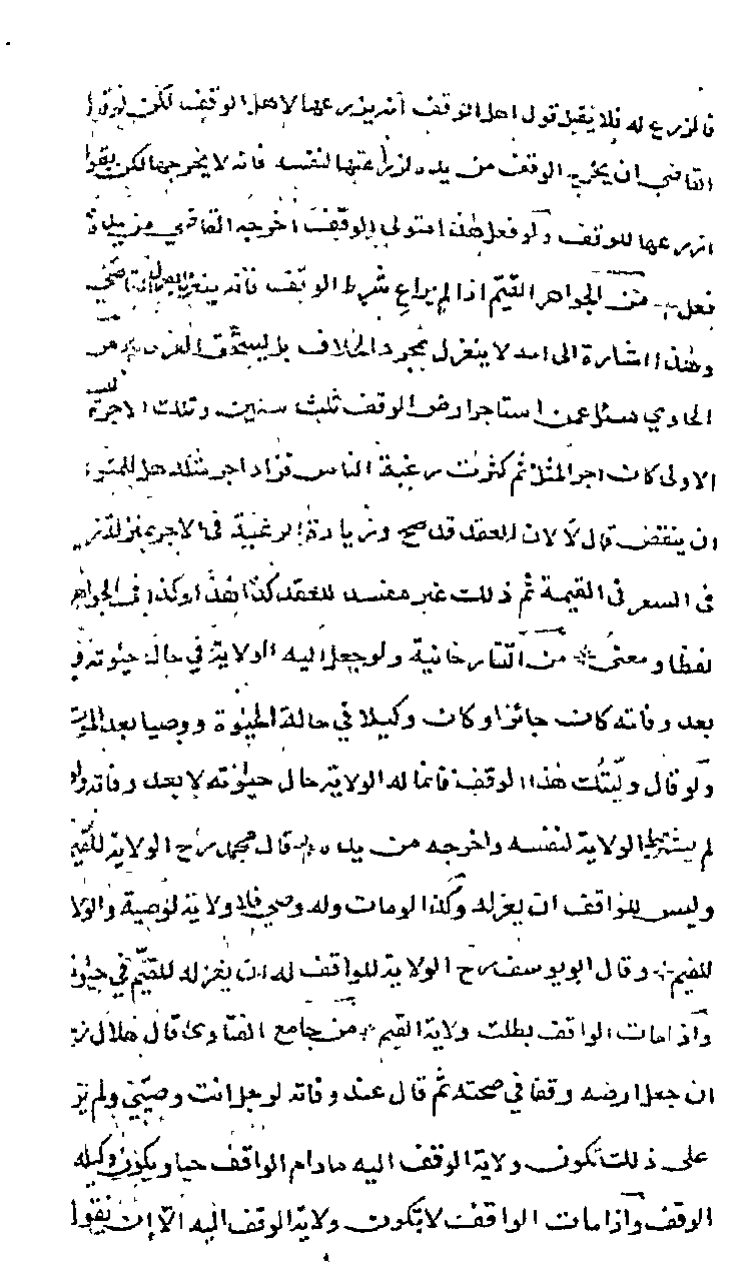 فالزرع له فلا يقبل قول اهل الوقف انه يزرعها لاهل الوقف لكن
القاضي ان يخرج الوقف من يده لزراعتها لنفسه فانه لا يخرجها لكن يقول
ازرعها للوقف ولو فعل هذا متولي الوقف اخرجه القاضي من يده
فعل من الجواهر القيّم اذا لم يراع شرط الوقف فانه ينعزل
وهذا اشارة الى انه لا ينعزل بمجرد الخلاف بل يستحق العزل من
الحاوي سئل عمن استاجر ارض الوقف ثلث سنين وتلك الاجرة
الاولى كانت اجر المثل ثم كثرت رغبة الناس فزاد اجر مثله هل للمتولي
ان ينقض قال لا لان العقد قد صح وزيادة الرغبة في الاجر بمنزلة
في السعر في القيمة ثم ذلك غير مفسد للعقد كذا هذا وكذا في الجواهر
لفظا ومعنى من التتارخانية ولو جعل اليه الولاية في حال حيوته و
بعد وفاته كان جائزا وكان وكيلا في حالة الحيوة ووصيا بعد
ولو قال وليتك هذا الوقف فانما له الولاية حال حيوته لا بعد وفاته ولو
لم يشترط الولاية لنفسه واخرجه من يده قال محمد رح الولاية للقيم
وليس للواقف ان يعزله وكذا لو مات وله وصي فلا ولاية لوصيه والولا
للقيم وقال ابو يوسف رح الولاية للواقف له ان يعزله للقيّم في حيوته
واذا مات الواقف بطلت ولاية القيم من جامع الفتاوى قال هلال
ان جعل ارضه وقفا في صحته ثم قال عند وفاته لرجل انت وصيّي ولم يزد
على ذلك تكون ولاية الوقف اليه مادام الواقف حيا ويكون وكيله
الوقف واذا مات الواقف لا تكون ولاية الوقف اليه الا ان يقول